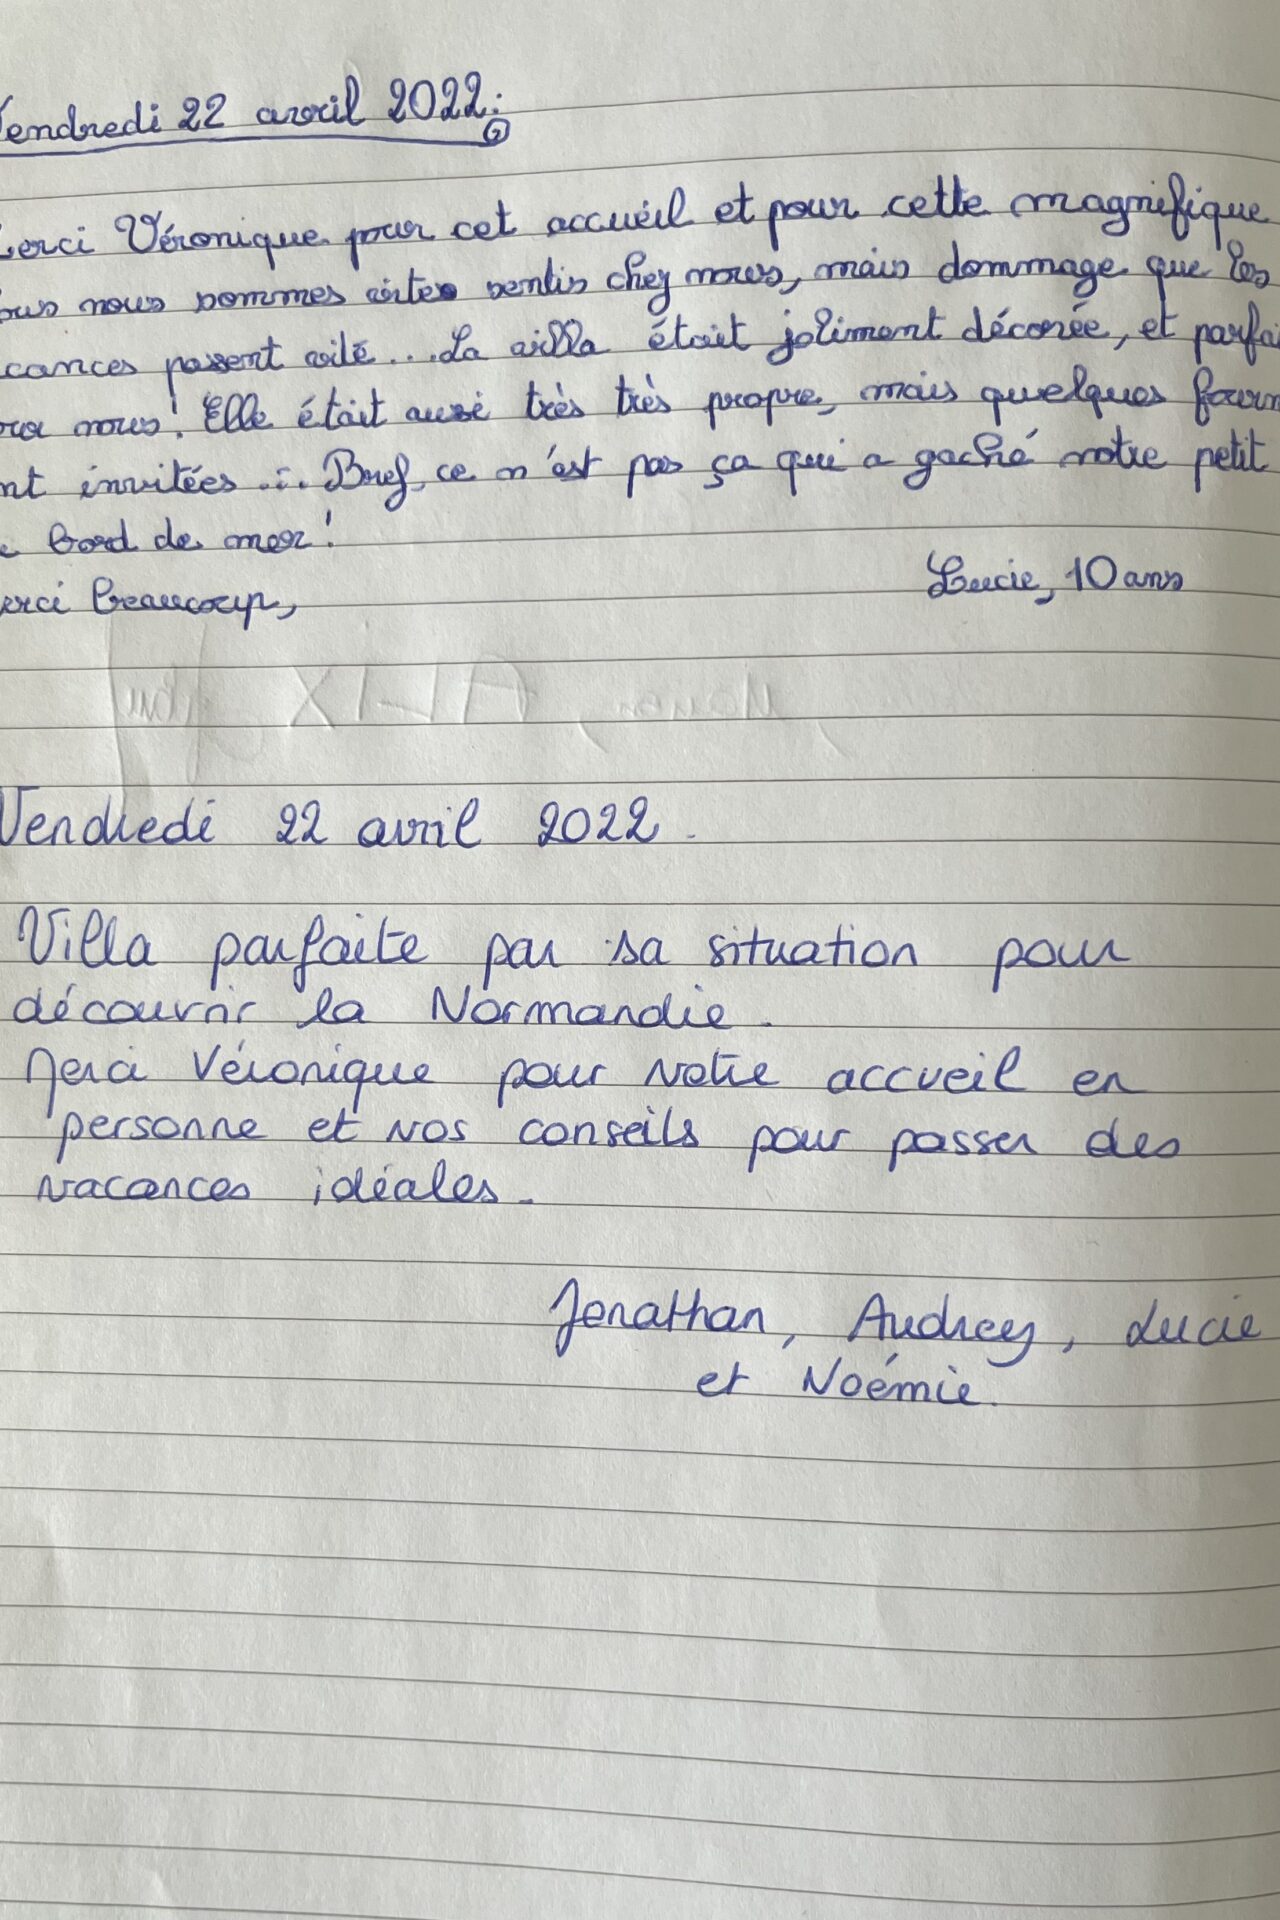 Vendredi 22 avril 2022:
Merci Véronique pour cet accueil et pour cette magnifique
nous nous sommes vites sentis chez nous, mais dommage que les
cances passent vite... La villa était joliment décorée, et parfai
pour nous! Elle était aussi très très propre, mais quelques fourm
nt invitées ... Bref, ce n'est pas ça qui a gaché notre petit
bord de mer!
Merci beaucoup,
Lucie, 10 ans
Vendredi 22 avril 2022.
Villa parfaite par sa situation pour
découvrir la Normandie.
Merci Véronique pour votre accueil en
personne et vos conseils pour passer des
vacances idéales.
Jonathan, Audrey, Lucie
et Noémie.